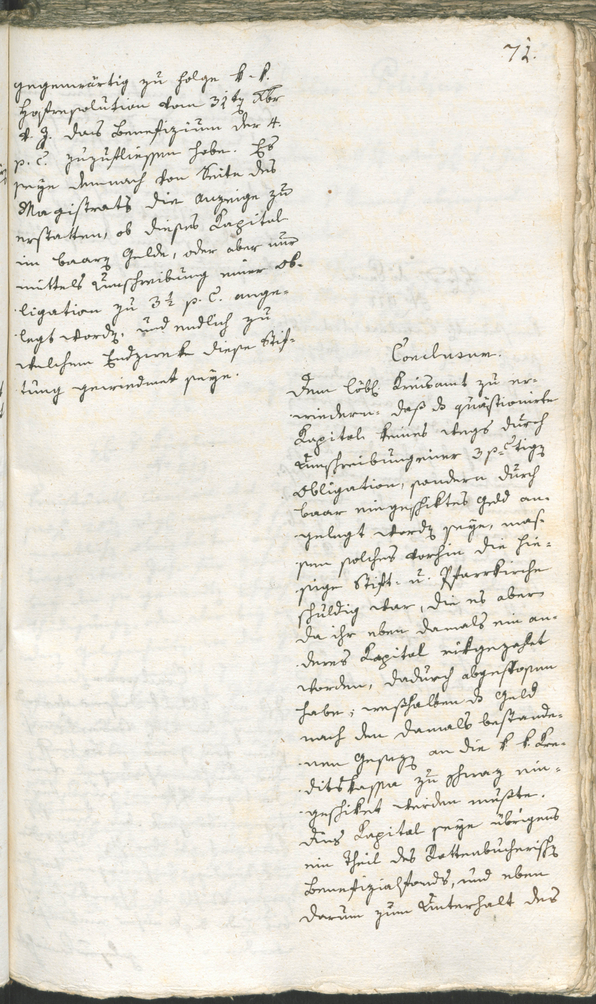 72.
gegenwärtig zu folge k. k.
Hofresolution vom 31ten Xbr
v. J. das Benefizium der 4.
p. C. zuzufliessen habe. Es
seye demnach von Seite des
Magistrats die Anzeige zu
erstatten, ob dieses Kapital
im baarn Gelde, oder aber nur
mittels Umschreibung einer Ob-
ligation zu 3½ p. C. ange-
legt worden, und endlich zu
welchem Endzweke diese Stif-
tung gewiedmet seye.
Conclusum.
Dem löbl. Kreisamt zu er-
wiedern: daß das quästionirte
Kapital keines wegs durch
Umschreibung einer 3 p. C tigen
Obligation, sondern durch
baar eingeschiktes Geld an-
gelegt worden seye, mas-
sen solches vorhin die hie-
sige Stift- u. Pfarrkirche
schuldig war, die es aber
da ihr eben damals ein an-
deres Kapital rükgezahlt
worden, dadurch abgestossen
habe; weshalben das Geld
nach den damals bestande-
nen Gesezen an die k. k. Kre-
ditskassa zu Schwaz ein-
geschiket werden mußte.
Dies Kapital seye übrigens
ein Theil des Rottenbucherischen
Benefizialfonds, und eben
darum zum Unterhalt des